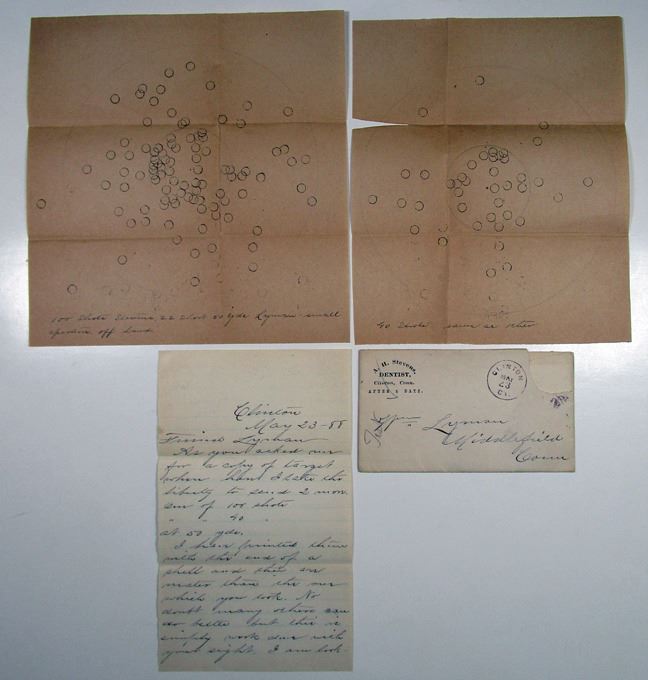 100 Shots Stevens, 22 Short 50 yds Lyman small
aperture off hand
40 Shots same as other
Clinton
May 23-88
Friend Lyman
As you asked me
for a copy of target
when here I take the
liberty to send 2 more
one of 100 shots
" " 40 "
at 50 yds.
I have printed them
with the end of a
shell and they are
neater than the one
which you took. No
doubt many others can
do better but this is
simply work done with
your sight. I am look-
A. H. Stevens,
DENTIST,
Clinton, Conn.
CLINTON
MAY
23
CT.
Lyman
Middlefield
Conn